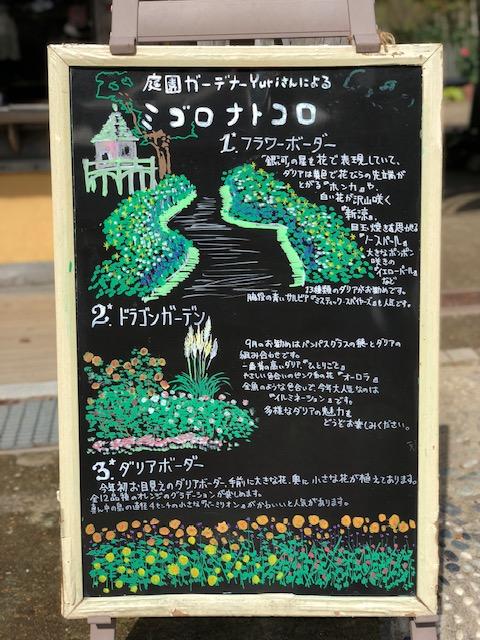 庭園ガーデナーYuriさんによる
ミゴロナトコロ
1* フラワーボーダー
"銀河の星を花で表現していて、
ダリアは黄色で花びらの先端が
とがる『ホンカ』や、
白い花が沢山咲く
『新涼』
目玉焼きを思わせる
『ノースパール』
大きなポンポン
咲きの
『イエローパール』
など
13種類のダリアがお勧めです。
脇役の青いサルビア『ミスティック・スパイヤーズ』も人気です。
2* ドラゴンガーデン
9月のお勧めはパンパスグラスの穂とダリアの
組み合わせです。
一番背の高いダリア『ひとりごと』
やさしい色合いのピンク色の花『オーロラ』
金魚のような色合いで、今年大人気なのは
『イルミネーション』です。
多様なダリアの魅力を
どうぞお楽しみください。
3* ダリアボーダー
今年初お目見えのダリアボーダー、手前に大きな花、奥に小さな花が植えてあります。
全12品種のオレンジのグラデーションが楽しめます。
真ん中の島の直径4センチの小さな『バーミリオン』がかわいいと人気があります。